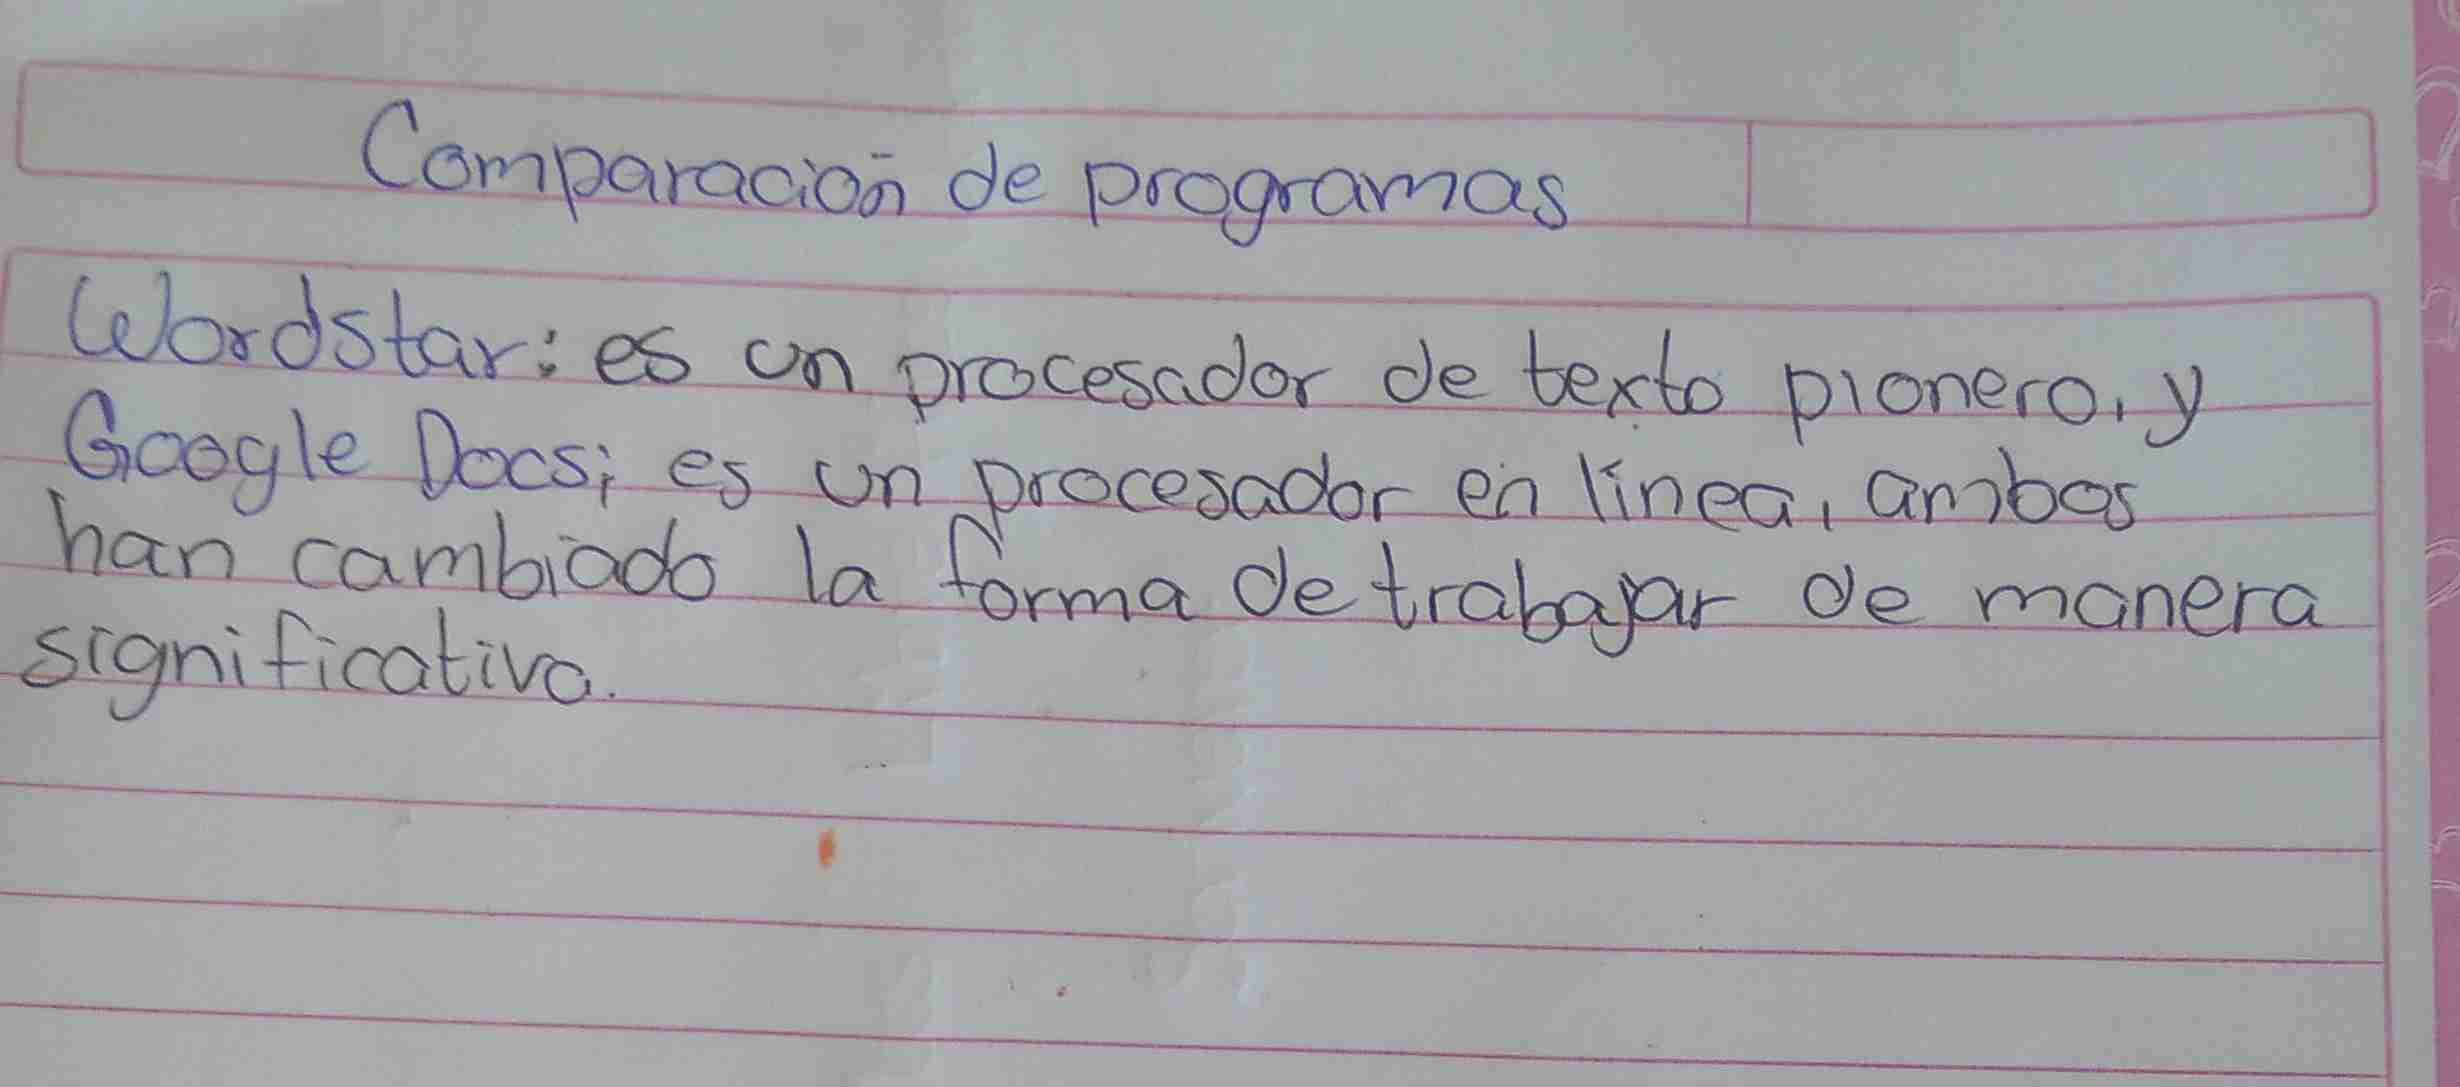 Comparación de programas
Wordstar: es un procesador de texto pionero, y
Google Docs; es un procesador en línea, ambos
han cambiado la forma de trabajar de manera
significativa.